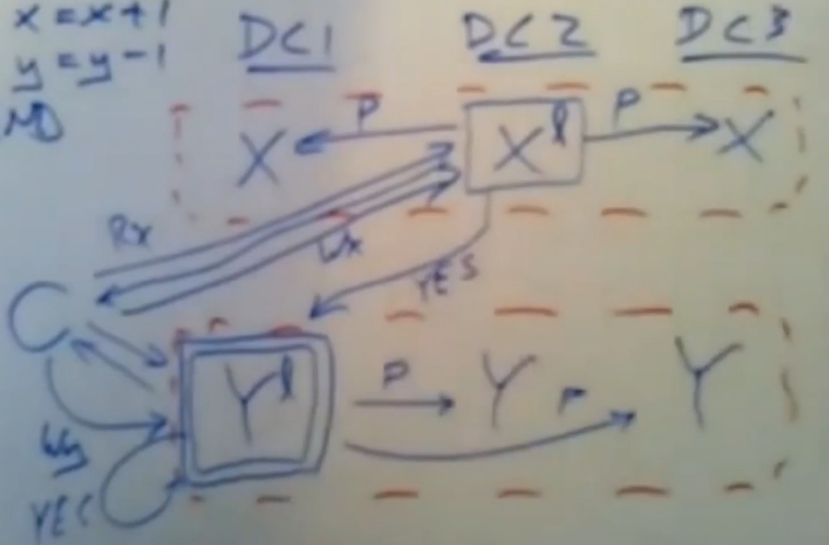 x = x + 1
y = y - 1
DC1 DC2 DC3
X P Xl P X
Rx
Wx
YES
C
Yl P Y P Y
Wy
YES